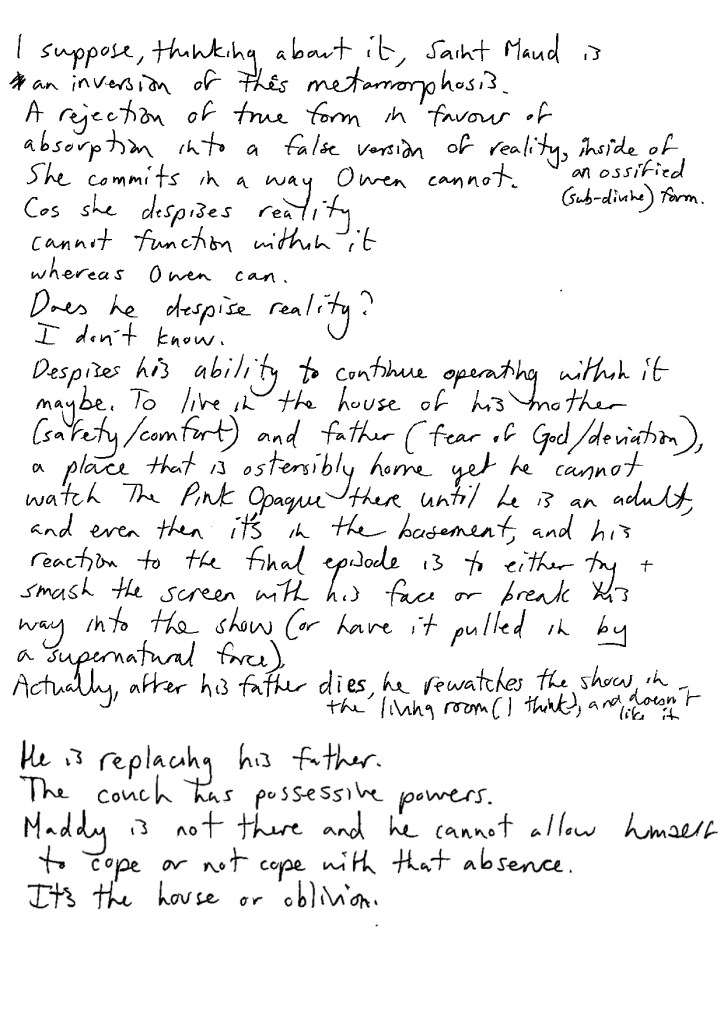 I suppose, thinking about it, Saint Maud is
* an inversion of this metamorphosis.
A rejection of true form in favour of
absorption into a false version of reality, inside of
an ossified
(sub-divine) form.
She commits in a way Owen cannot.
Cos she despises reality
cannot function within it
whereas Owen can.
Does he despise reality?
I don't know.
Despises his ability to continue operating within it
maybe. To live in the house of his mother
(safety/comfort) and father (fear of God/deviation),
a place that is ostensibly home yet he cannot
watch The Pink Opaque there until he is an adult,
and even then it's in the basement, and his
reaction to the final episode is to either try +
smash the screen with his face or break his
way into the show (or have it pulled in by
a supernatural force).
Actually, after his father dies, he rewatches the show in
the living room (I think), and doesn't
like it
He is replacing his father.
The couch has possessive powers.
Maddy is not there and he cannot allow himself
to cope or not cope with that absence.
It's the house or oblivion.